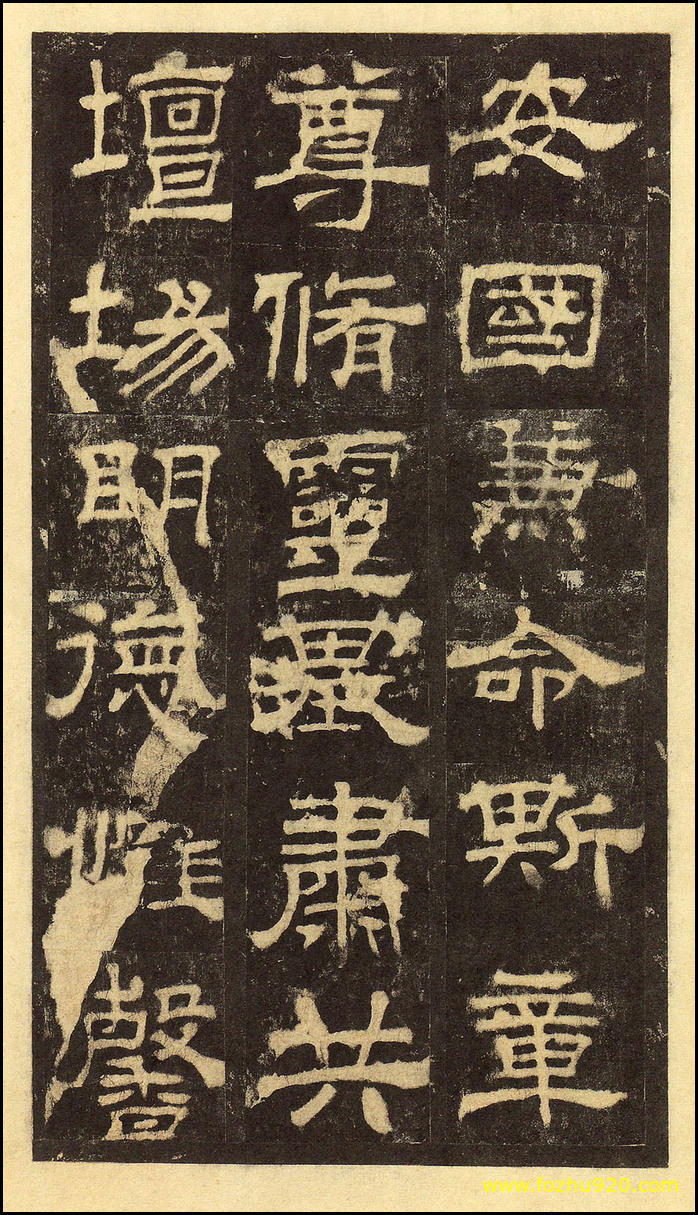 安國兼命斯章
尊脩靈基肅共
壇場明德惟馨
www.fozhu920.com